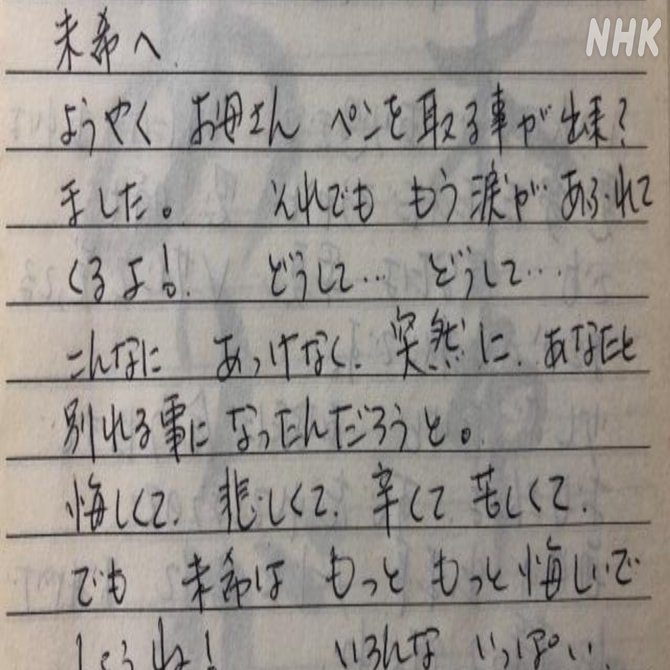 NHK
未希へ
ようやく お母さん ペンを取る事が出来?
ました。 それでも もう涙が あふれて
くるよ!. どうして… どうして…
こんなに あっけなく、突然に、あなたと
別れる事に なったんだろうと。
悔しくて、悲しくて、辛くて 苦しくて、
でも 未希は もっと もっと 悔しいで
しょうね! いろんな いっぱい